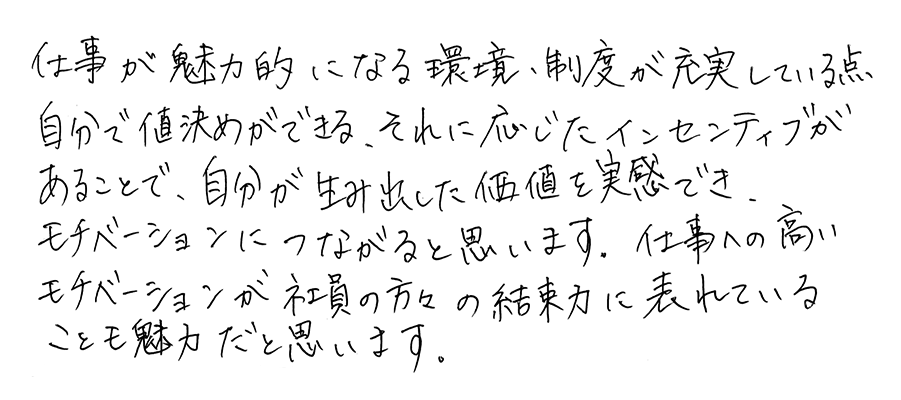 仕事が魅力的になる環境、制度が充実している点、
自分で値決めができる、それに応じたインセンティブが
あることで、自分が生み出した価値を実感でき、
モチベーションにつながると思います。仕事への高い
モチベーションが社員の方々の結束力に表れている
ことも魅力だと思います。